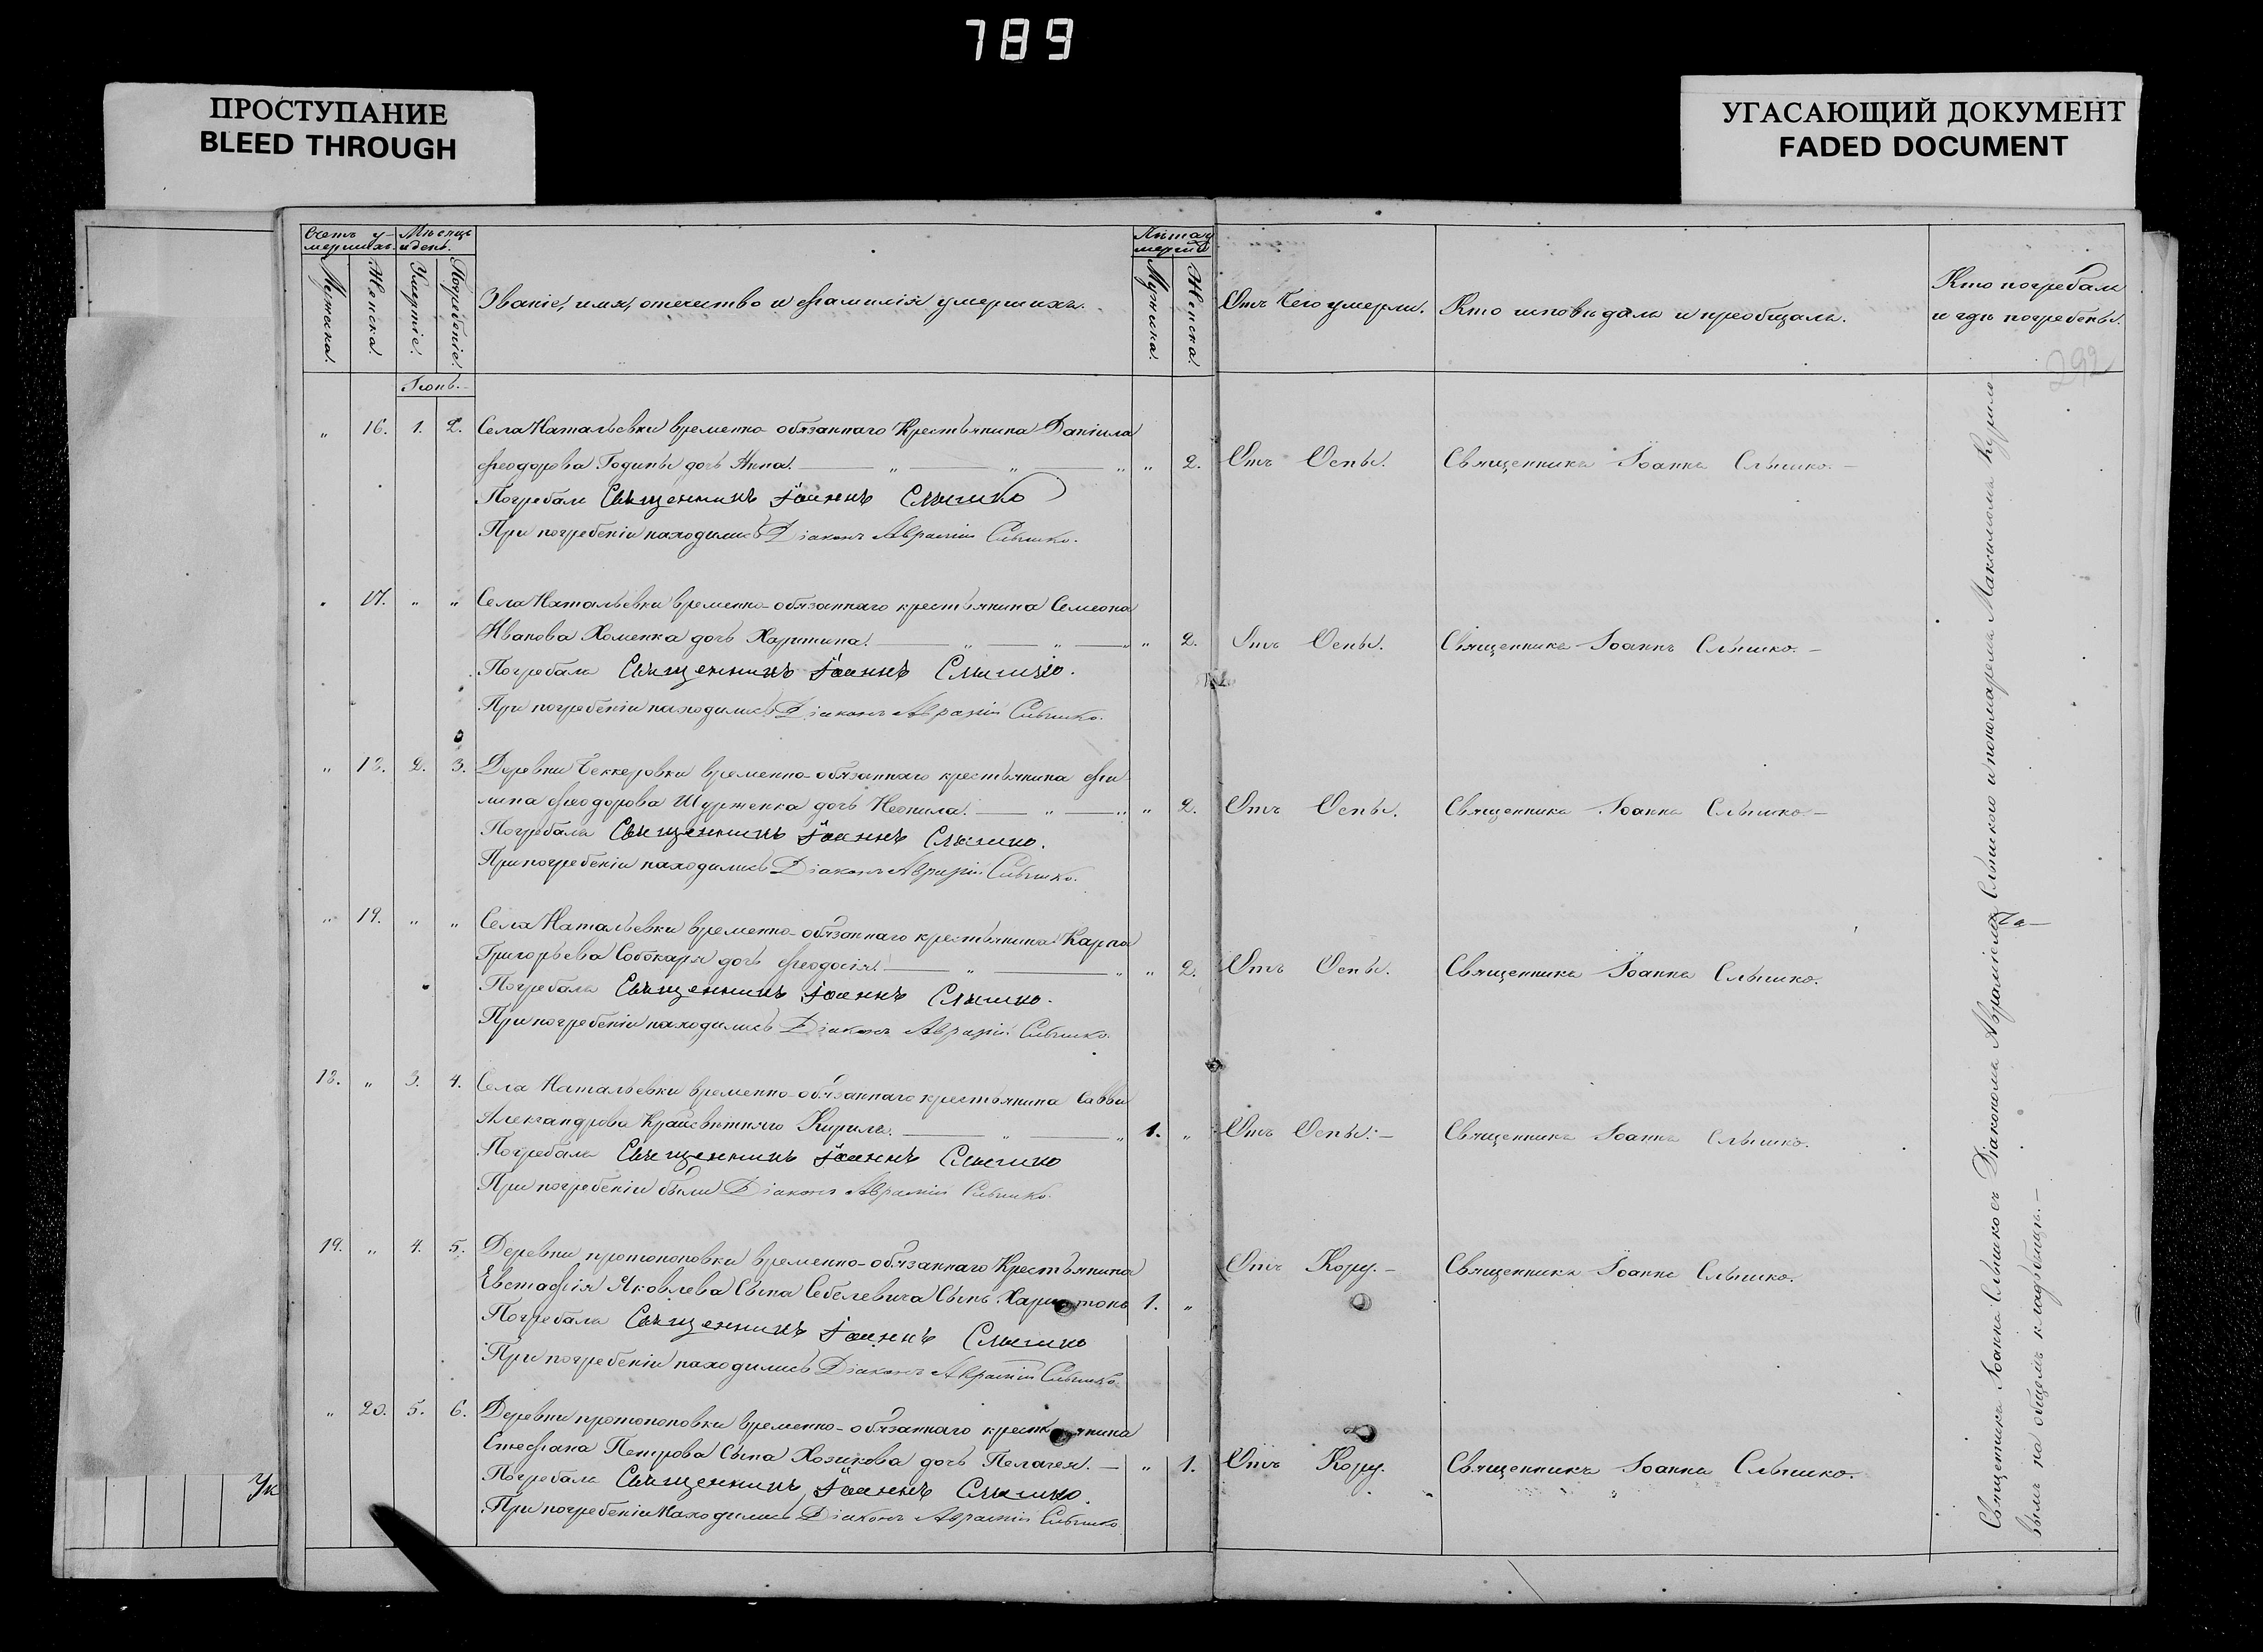 789
ПРОСТУПАНИЕ
BLEED THROUGH
УГАСАЮЩИЙ ДОКУМЕНТ
FADED DOCUMENT
Счетъ у-
мершихъ.
Мѣсяцъ
и день.
Мужска.
Женска.
Умертіе.
Погребеніе.
Званіе, имя, отечество и фамилія умершихъ.
Лѣта у
мерш
Мужска.
Женска.
Отъ чего умерли.
Кто исповѣдалъ и пріобщалъ.
Кто погребалъ
и гдѣ погребены.
292
Іюнь.
" 16. 1. 2. Села Натальевки временно обязаннаго Крестьянина Даніила
Феодорова Годины дочь Анна. " " " " 2. Отъ Оспы. Священникъ Іоаннъ Слышко.
Погребалъ Священникъ Іоаннъ Слышко
При погребеніи находились Діаконъ Авраамій Слышко.
" 17. " " Села Натальевки временно-обязаннаго крестьянина Семеона
Иванова Хоменка дочь Харитина. " " " " 2. Отъ Оспы. Священникъ Іоаннъ Слышко.
Погребалъ Священникъ Іоаннъ Слышко.
При погребеніи находились Діаконъ Авраамій Слышко.
" 18. 2. 3. Деревни Беккеровки временно-обязаннаго крестьянина Фи
липа Феодорова дочь Неонила. " " " 2. Отъ Оспы. Священникъ Іоаннъ Слышко.
Погребалъ Священникъ Іоаннъ Слышко.
При погребеніи находились Діаконъ Авраамій Слышко.
" 19. " " Села Натальевки временно-обязаннаго крестьянина Карпа
Григорьева Собокаря дочь Феодосія. " " " 2. Отъ Оспы. Священникъ Іоаннъ Слышко.
Погребалъ Священникъ Іоаннъ Слышко.
При погребеніи находились Діаконъ Авраамій Слышко.
18. " 3. 4. Села Натальевки временно-обязаннаго крестьянина Саввы
Александрова Кирилъ. " " 1. " Отъ Оспы. Священникъ Іоаннъ Слышко.
Погребалъ Священникъ Іоаннъ Слышко
При погребеніи были Діаконъ Авраамій Слышко.
19. " 4. 5. Деревни протопоповки временно-обязаннаго Крестьянина
Евстафія Яковлева Сына Себелевича Сынъ Харитонъ 1. " Отъ Кору. Священникъ Іоаннъ Слышко.
Погребалъ Священникъ Іоаннъ Слышко
При погребеніи находились Діаконъ Авраамій Слышко.
" 20. 5. 6. Деревни протопоповки временно-обязаннаго крестьянина
Стефана Петрова Сына Хозикова дочь Пелагея. " 1. Отъ Кору. Священникъ Іоаннъ Слышко.
Погребалъ Священникъ Іоаннъ Слышко.
При погребеніи Находились Діаконъ Авраамій Слышко
Священникъ Іоаннъ Слышко съ Діакономъ Авраміемъ Слышкой и пономаремъ Максимомъ Курило
вымъ на общемъ кладбищѣ.
Ук